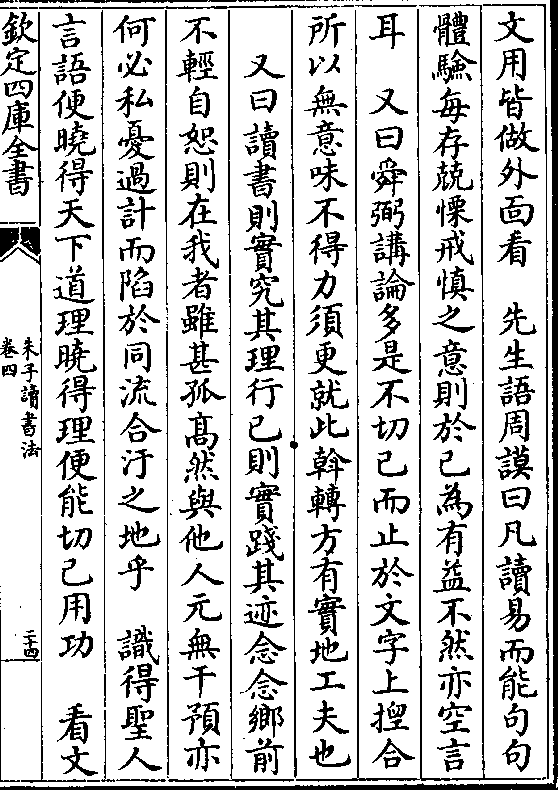 文用皆做外面看　先生語周謨曰凡讀易而能句句
體驗每存兢慄戒慎之意則於己為有益不然亦空言
耳　又曰舜弼講論多是不切己而止於文字上捏合
所以無意味不得力須更就此斡轉方有實地工夫也
　又曰讀書則實究其理行已則實踐其迹念念鄉前
不輕自恕則在我者雖甚孤髙然與他人元無干預亦
何必私憂過計而陷於同流合汙之地乎　識得聖人
言語便曉得天下道理曉得理便能切己用功　看文
欽定四庫全書
朱子讀書法
卷四
二十四